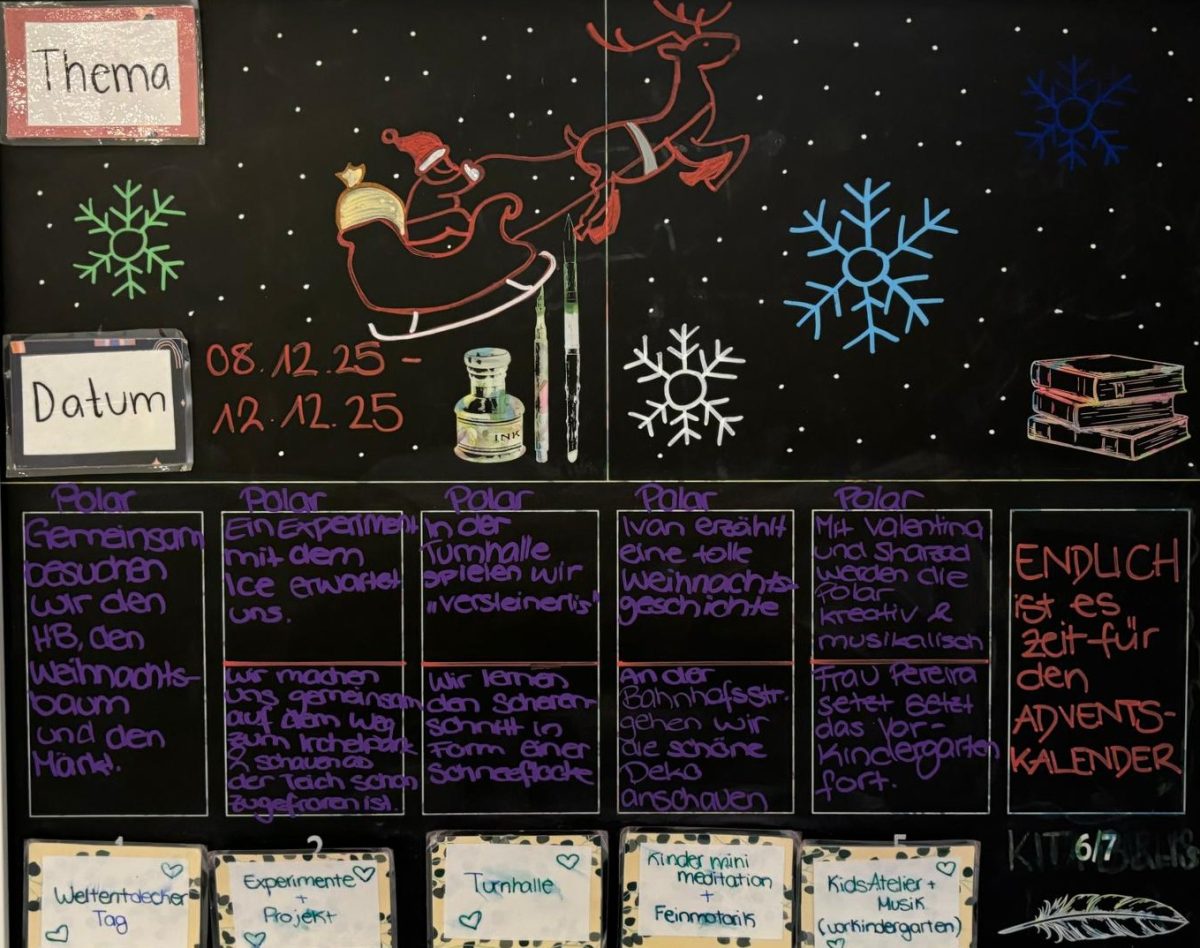 Thema
Datum
08.12.25 -
12.12.25
INK
Polar
Gemeinsam
besuchen
wir den
HB, den
Weihnachts-
baum
und den
Märkt.
Polar
Ein Experiment
mit dem
Ice erwartet
uns.
wir machen
uns gemeinsam
auf dem weg
zum Irchelpark
& schauen ob
der Teich schon
zugefroren ist.
Polar
In der
Turnhalle
spielen wir
"versteinerlis"
Wir lernen
den Scheren-
schnitt in
Form einer
Schneeflocke
Polar
Ivan erzählt
eine tolle
Weihnachts-
geschichte
An der
Bahnhofsstr.
gehen wir
die schöne
Deko
anschauen
Polar
Mit Valentina
und Sharzad
werden die
Polar
kreativ &
musikalisch
Frau Pereira
setzt setzt
das Vor-
Kindergarten
fort.
ENDLICH
ist es
zeit für
den
ADVENTS-
KALENDER
1
2
5
6/7
Weltentdecker
Tag
Experimente
+
Projekt
Turnhalle
Kinder mini
meditation
+
Feinmotorik
Kids-Atelier +
Musik
(vorkindergarten)